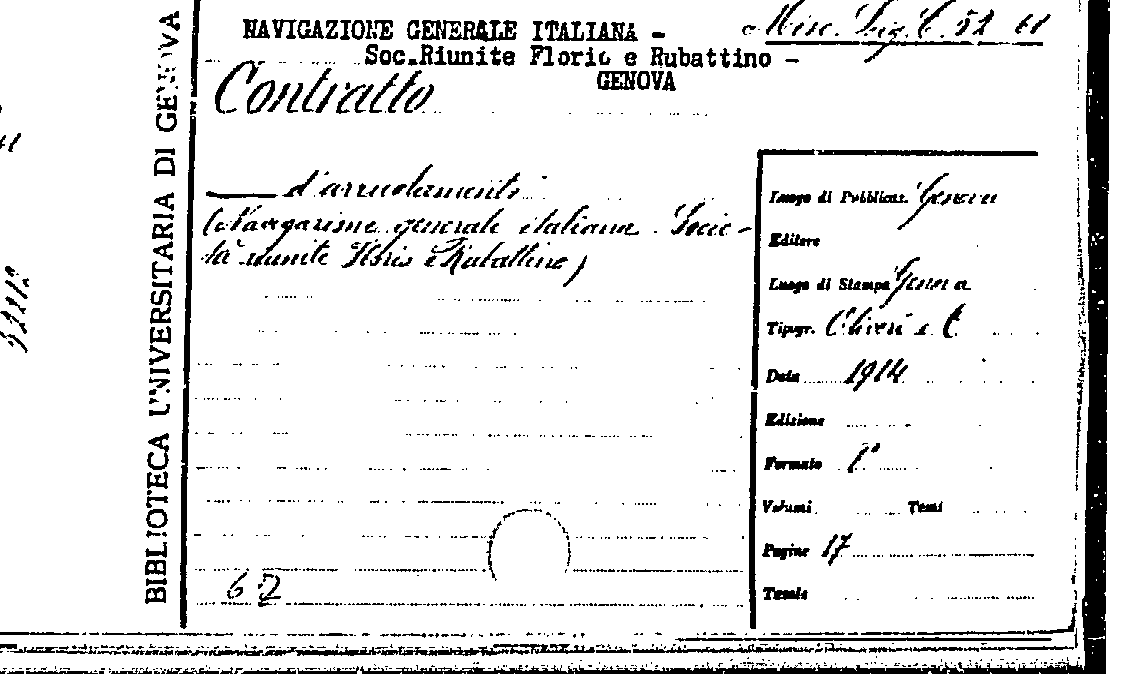 BIBLIOTECA UNIVERSITARIA DI GENOVA
NAVIGAZIONE GENERALE ITALIANA -
Misc. Lig. C. 52 61
Soc.Riunite Florio e Rubattino -
GENOVA
Contratto
d'arruolamento
(Navigazione generale italiana. Socie-
tà riunite Florio e Rubattino)
Luogo di Pubblicaz. Genova
Editore
Luogo di Stampa Genova
Tipogr. Olivieri e C
Data 1914
Edizione
Formato
Volumi Tomi
Pagine 17
Tavole
62